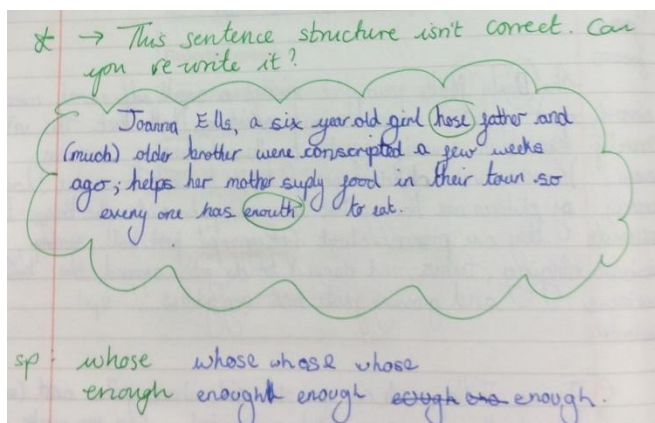 * → This sentence structure isn't correct. Can
you re-write it?
Joanna Ells, a six year old girl hose father and
(much) older brother were conscripted a few weeks
ago; helps her mother suply food in their town so
every one has enouth to eat.
sp: whose whose whose whose
enough enough enough enough.